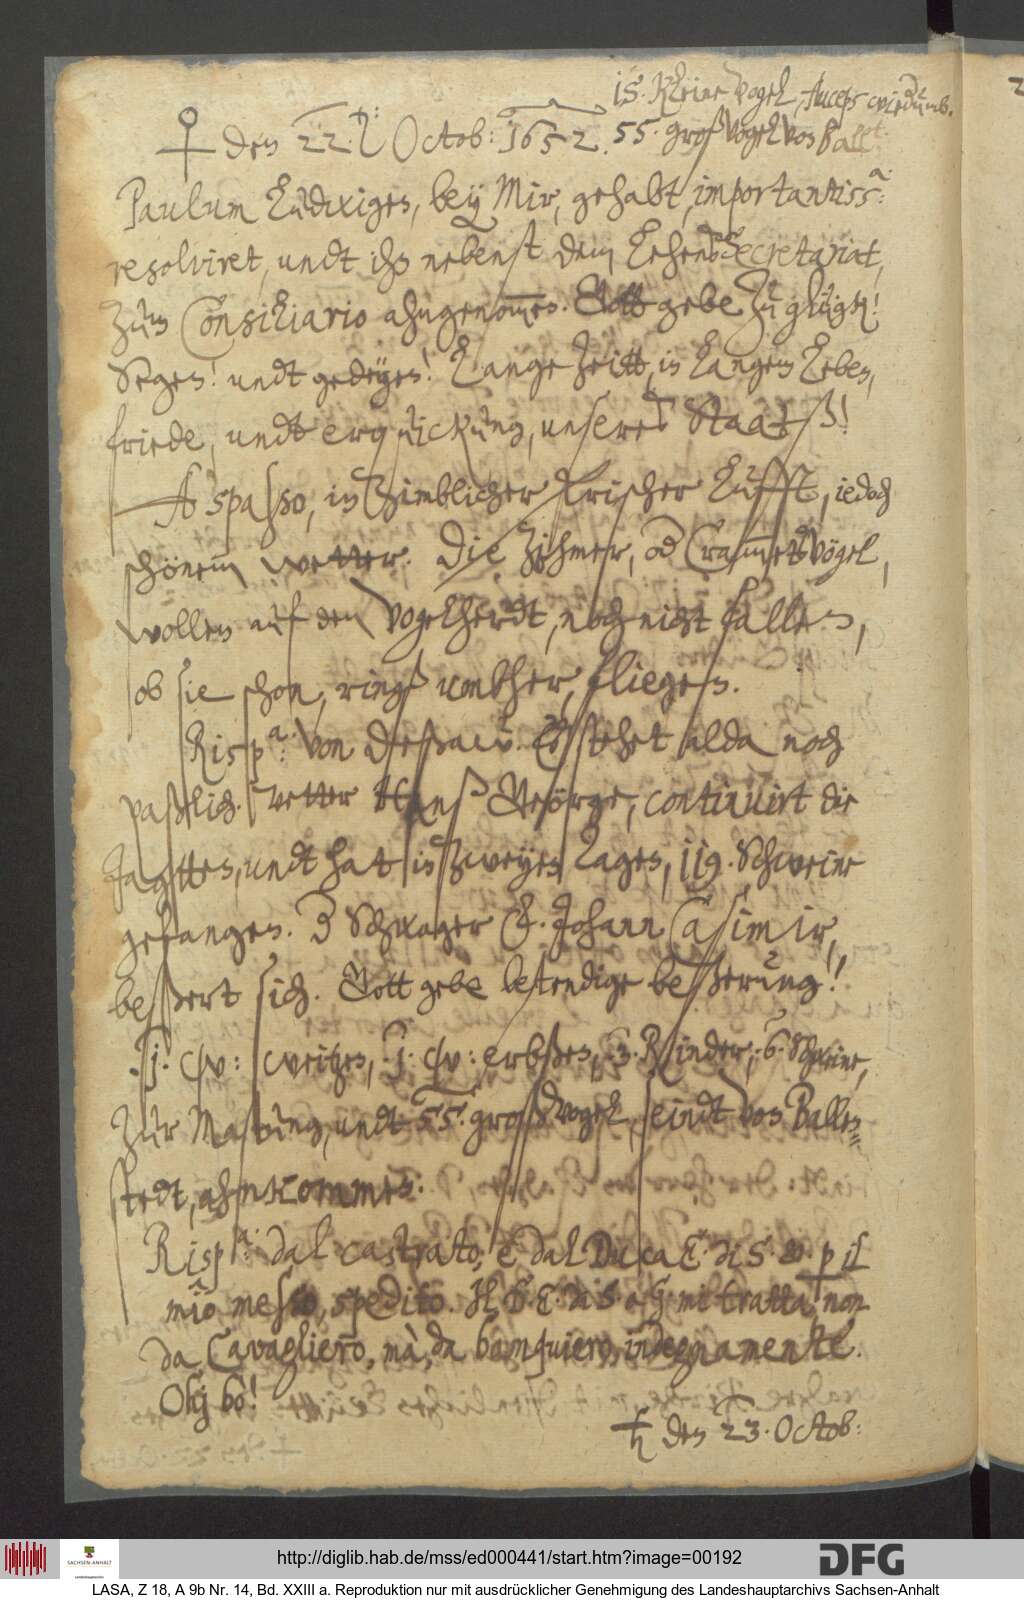 15. kleine Vogel, Auceps wiederumb.
♀ den 22. t: Octob: 1652. 55. groß Vogel von Ball:t
Paulum Ludwigen, bey Mir, gehabt, importantiss:a
resolviret, undt ihn nebenst dem LehensSecretariat,
zum Consiliario ahngenommen. Gott gebe zu glügk!
Segen! undt gedeyen! Lange Zeitt, in Langem Leben,
friede, undt erquickung, unsers Staats!
A spasso, in zimblicher frischer Lufft, iedoch
schönem wetter. Die Zihmer, od Crammets Vögel,
wollen auf den Vogelherdt, noch nicht fallen,
ob sie schon, rings umbher, fliegen.
Risp:a von Deßaw. Es stehet alda noch
paßlich. Vetter Hanß Geörge, continuirt die
Jagtten, undt hat in zweyen Tagen, 119. Schweine
gefangen. D Schwager F. Johann Casimir,
beßert sich. Gott gebe bestendige beßerung!
.1. w: weitzen, .1. w: erbßen, .3. Rinder, .6. Schweine,
zur Mastung, undt 55. groß Vogel, seindt von Ballen=
stedt, ahnkommen.
Risp:a dal castrato, è dal Duca E. di S. G. p il
mio messo, spedito. Il D. E. di S. G. mi tratta, non
da Cavagliero, mà, da banquiero, indegnamente.
Ohj bò!
♄ den 23. Octob:
http://diglib.hab.de/mss/ed000441/start.htm?image=00192
DFG
SACHSEN-ANHALT
LASA, Z 18, A 9b Nr. 14, Bd. XXIII a. Reproduktion nur mit ausdrücklicher Genehmigung des Landeshauptarchivs Sachsen-Anhalt